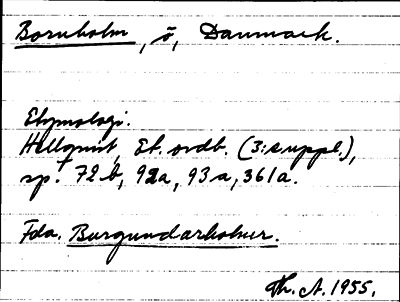 Bornholm, ö, Danmark.
Etymologi.
Hellquist, Et. ordb. (3:suppl.),
sp. 72b, 92a, 93a, 361a.
Fda. Burgundarholmr.
Th. A. 1955.